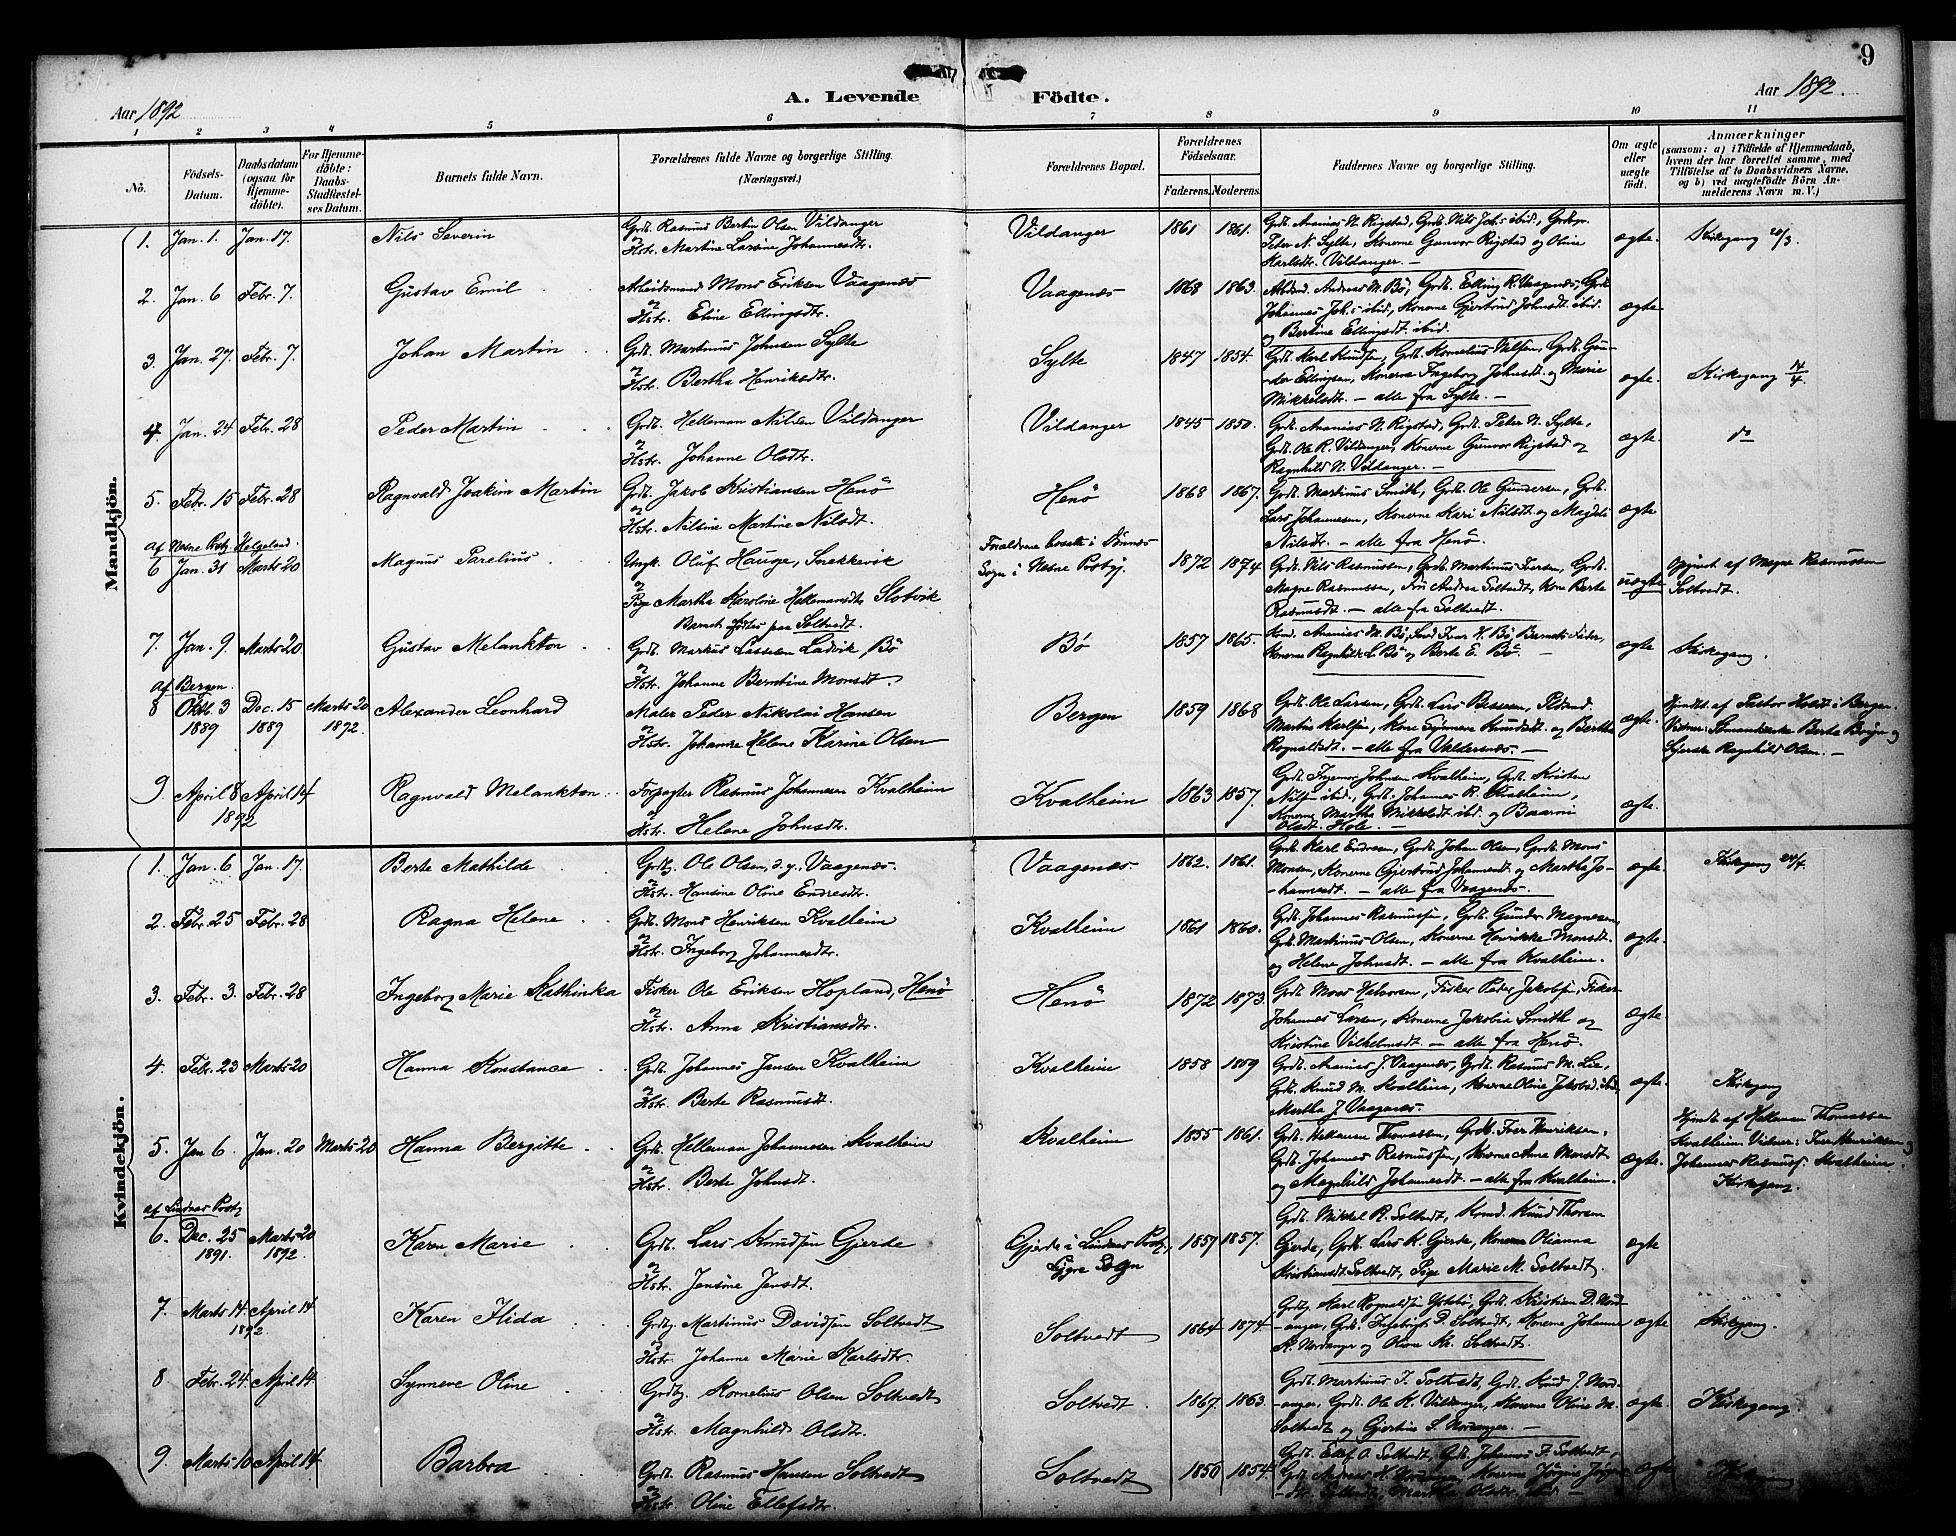 9
Aar 1892
A. Levende Födte.
Aar 1892.
1 2 3 4 5 6 7 8 9 10 11
No.
Födsels-
Datum.
Daabsdatum
(ogsaa for
Hjemme-
döbte).
For Hjemme-
döbte:
Daabs-
Stadfæstel-
ses Datum.
Barnets fulde Navn.
Forældrenes fulde Navne og borgerlige Stilling.
(Næringsvei.)
Forældrenes Bopæl.
Forældrenes
Födselsaar.
Faderens. Moderens.
Faddernes Navne og borgerlige Stilling.
Om ægte
eller
uægte
födt.
Anmærkninger
(saasom: a) i Tilfælde af Hjemmedaab,
hvem der har forrettet samme, med
Tilföielse af to Daabsvidners Navne.
og b) ved uægtefödte Börn An-
melderens Navn m. V.)
Mandkjön.
1. Jan. 1. Jan. 17. Nils Severin
Grdb. Rasmus Bertin Olsen Vildanger
Hstr. Martine Larsine Johannesdtr.
Vildanger 1861 1861.
Grdb. Ananias N. Rigstad, Grdb. Nils Johs ibid.,
Peter N. Sylte, Konerne Gunvor Rigstad og Oline
Karlsdtr. Vildanger. —
ægte. Kirkegang 20/3.
2. Jan. 6 Febr. 7. Gustav Emil
Arbeidsmand Mons Eriksen Vaagenæs
Hstr. Eline Ellingsdtr.
Vaagenæs 1868 1863.
Andreas M. Bö, Grdb. Elling R. Vaagenæs, Grdb.
Johannes Johs ibid., Konerne Gjertrud Johnsdt. ibid.
og Bertine Ellingsdt. ibid.
ægte
3. Jan. 27. Febr. 7. Johan Martin
Grdb. Martinus Johnsen Sylte
Hstr. Bertha Henriksdtr.
Sylte 1847 1854.
Grdb. Karl Knudsen, Grdb. Kornelius Nilsen, Grdb. Gun-
der Ellingsen, Konerne Ingeborg Johnsdt. og Marie
Mikkelsdt. — alle fra Sylte. —
ægte. Kirkegang 14/4.
4. Jan. 24 Febr. 28 Peder Martin
Grdb. Helleman Nilsen Vildanger
Hstr. Johanne Olsdtr.
Vildanger 1845 1850.
Grdb. Ananias N. Rigstad, Grdb. Peter N. Sylte,
Grdb. Ole R. Vildanger, Konerne Gunvor Rigstad og
Ragnhild N. Vildanger. —
ægte. do
5. Febr. 15 Febr. 28 Ragnvald Joakim Martin
Grdb. Jakob Kristiansen Henö
Hstr. Nilsine Martine Nilsdt.
Henö 1868 1867.
Grdb. Martinus Smith, Grdb. Ole Gundersen, Grdb.
Lars Johannesen, Konerne Kari Nilsdt. og Magdli
Nilsdtr. — alle fra Henö.
ægte
af Nesne Prstg. Helgeland.
6 Jan. 31 Marts 20 Magnus Parelius
Ungk. Oluf Hauge, Snekkevik
Pige Martha Karoline Hellemansdtr Slotvik
Barnet födtes paa Soltvedt.
Forældrene bosatte i Dønnes
Sogn i Nesne Prstgj. 1872 1874
Grdb. Nils Rasmussen, Grdb. Martinus Iversen, Grdb.
Magne Rasmussen, Fru Andrea Soltvedt, Kone Berte
Rasmusdt. — alle fra Soltvedt.
uægte Opgivet af Magne Rasmussen
Soltvedt.
7. Jan. 9. Marts 20 Gustav Melankton
Grdb. Markus Lassesen Ladvik Bö
Hstr. Johanne Berntine Monsdt.
Bø 1857 1865.
Ananias M. Bö, Iver H. Bö, Barnets Fader,
Konerne Ragnhild L. Bö og Berte E. Bö. —
ægte Kirkegang.
af Bergen.
8 Oktb. 3 1889 Dec. 15 1889 Marts 20 1892. Alexander Leonhard
Maler Peder Nikolai Hansen
Hstr. Johanne Helene Karine Olsen
Bergen 1859 1868
Grdb. Ole Larsen, Grdb. Lars Bessesen,
Martin Karlsen, Kone Synneve Knudsdt. og Bertha
Rognaldsdt. — alle fra Valdersnæs. —
ægte. Hjmdt. af Pastor Holdt i Bergen.
Vidner: Berta Börge og
Syerske Ragnhild Olsen. —
9. April 8 1892 April 14 Ragnvald Melankton
Forpagter Rasmus Johannesen Kvalheim
Hstr. Helene Johnsdtr.
Kvalheim 1863 1857.
Grdb. Ingemar Johnsen Kvalheim, Grdb. Kristen
Nilsen ibid., Grdb. Johannes R. Kvalheim,
Konerne Martha Mikkelsdt ibid. og
Olsdt. Hole. —
ægte.
Kvindekjön.
1. Jan. 6 Jan. 17. Berte Mathilde
Grdbg. Ole Olsen, d.y., Vaagenæs.
Hstr. Hansine Oline Endresdtr.
Vaagenæs 1862. 1861.
Grdb. Karl Endresen, Grdb. Johan Olsen, Grdb. Mons
Monsen, Konerne Gjertrud Johannesdt. og Martha Jo-
hannesdt. — alle fra Vaagenæs.
ægte. Kirkegang 24/4.
2. Febr. 25 Febr. 28 Ragna Helene
Grdb. Mons Henriksen Kvalheim
Hstr. Ingeborg Johannesdtr.
Kvalheim 1861 1860.
Grdb. Johannes Rasmussen, Grdb. Gunder Magnesen,
Grdb. Martinus Olsen, Konerne Henrikke Monsdt.
og Helene Johnsdt. — alle fra Kvalheim.
ægte.
3. Febr. 3. Febr. 28 Ingeborg Marie Kathinka
Fisker Ole Eriksen Hopland, Henö
Hstr. Anna Kristiansdtr.
Henö 1872 1873.
Grdb. Mons Halvorsen, Fisker Peder Jakobsen, Fisker
Johannes Larsen, Konerne Jakobia Smith og
Kristine Vilhelmsdt. — alle fra Henö.
ægte.
4. Febr. 23 Marts 20 Hanna Konstance
Grdb. Johannes Jensen Kvalheim
Hstr. Berte Rasmusdt.
Kvalheim 1858 1859
Grdb. Ananias J. Vaagenæs, Grdb. Rasmus M. Lie,
Grdb. Knud M. Kvalheim, Konerne Oline Jakobsd. ibid,
Martha J. Vaagenæs.
ægte. Kirkegang
5. Jan 6. Jan. 20 Marts 20 Hanna Bergitte
Grdb. Helleman Johannesen Kvalheim
Hstr. Berte Johnsdt.
Kvalheim 1855 1861.
Grdb. Helleman Thomassen, Grdb. Iver Henriksen,
Grdb. Johannes Rasmussen, Konerne Anne Monsdt.
og Magnhild Johannesdt. — alle fra Kvalheim.
ægte. Hjmdt. af Helleman Thomassen
Kvalheim. Vidner: Iver Henriksen og
Johannes Rasmuss. Kvalheim.
Kirkegang.
af Lindaas Prstg.
6. Dec. 25 1891. Marts 20 1892. Karen Marie
Grdb. Lars Knudsen Gjerde
Hstr. Jensine Jensdt.
Gjerde i Lindaas Prstg.,
Lygre Sogn 1857 1857.
Grdb. Mikkel R. Soltvedt, Knud Thorsen
Gjerde, Grdb. Lars K. Gjerde, Konerne Olianna
Kristiansdt Soltvedt, Pige Marie M. Soltvedt.
ægte
7. Marts 14 1892 April 14 Karen Hida
Grdbg. Martinus Davidsen Soltvedt
Hstr. Johanne Marie Karlsdtr.
Soltvedt 1864 1874.
Grdbg. Karl Rognaldsen Ystebö, Grdb. Kristian D. Nord-
anger, Grdb. Ingebrigt D. Soltvedt, Konerne Johanne
K. Nordanger og Oline Soltvedt.
ægte Kirkegang.
8 Febr. 24. April 14. Synneve Oline
Grdbg. Kornelius Olsen Soltvedt
Hstr. Magnhild Olsdt.
Soltvedt. 1867. 1863.
Grdb. Martinus I. Soltvedt, Grdb. Knud J. Nord-
anger, Grdb. Ole H. Vildanger, Konerne Oline M.
Soltvedt og Gjertine S. Nordanger. —
ægte. Kirkegang.
9. Marts 10 April 14. Barbra
Grdb. Rasmus Hansen Soltvedt
Hstr. Oline Ellefsdtr.
Soltvedt 1850 1854.
Grdb. Ellef O. Soltvedt, Grdb. Johannes F. Soltvedt,
Grdb. Andreas H. Nordanger, Konerne
Soltvedt, Martha Olsdtr. ibid. —
ægte Kirkegang